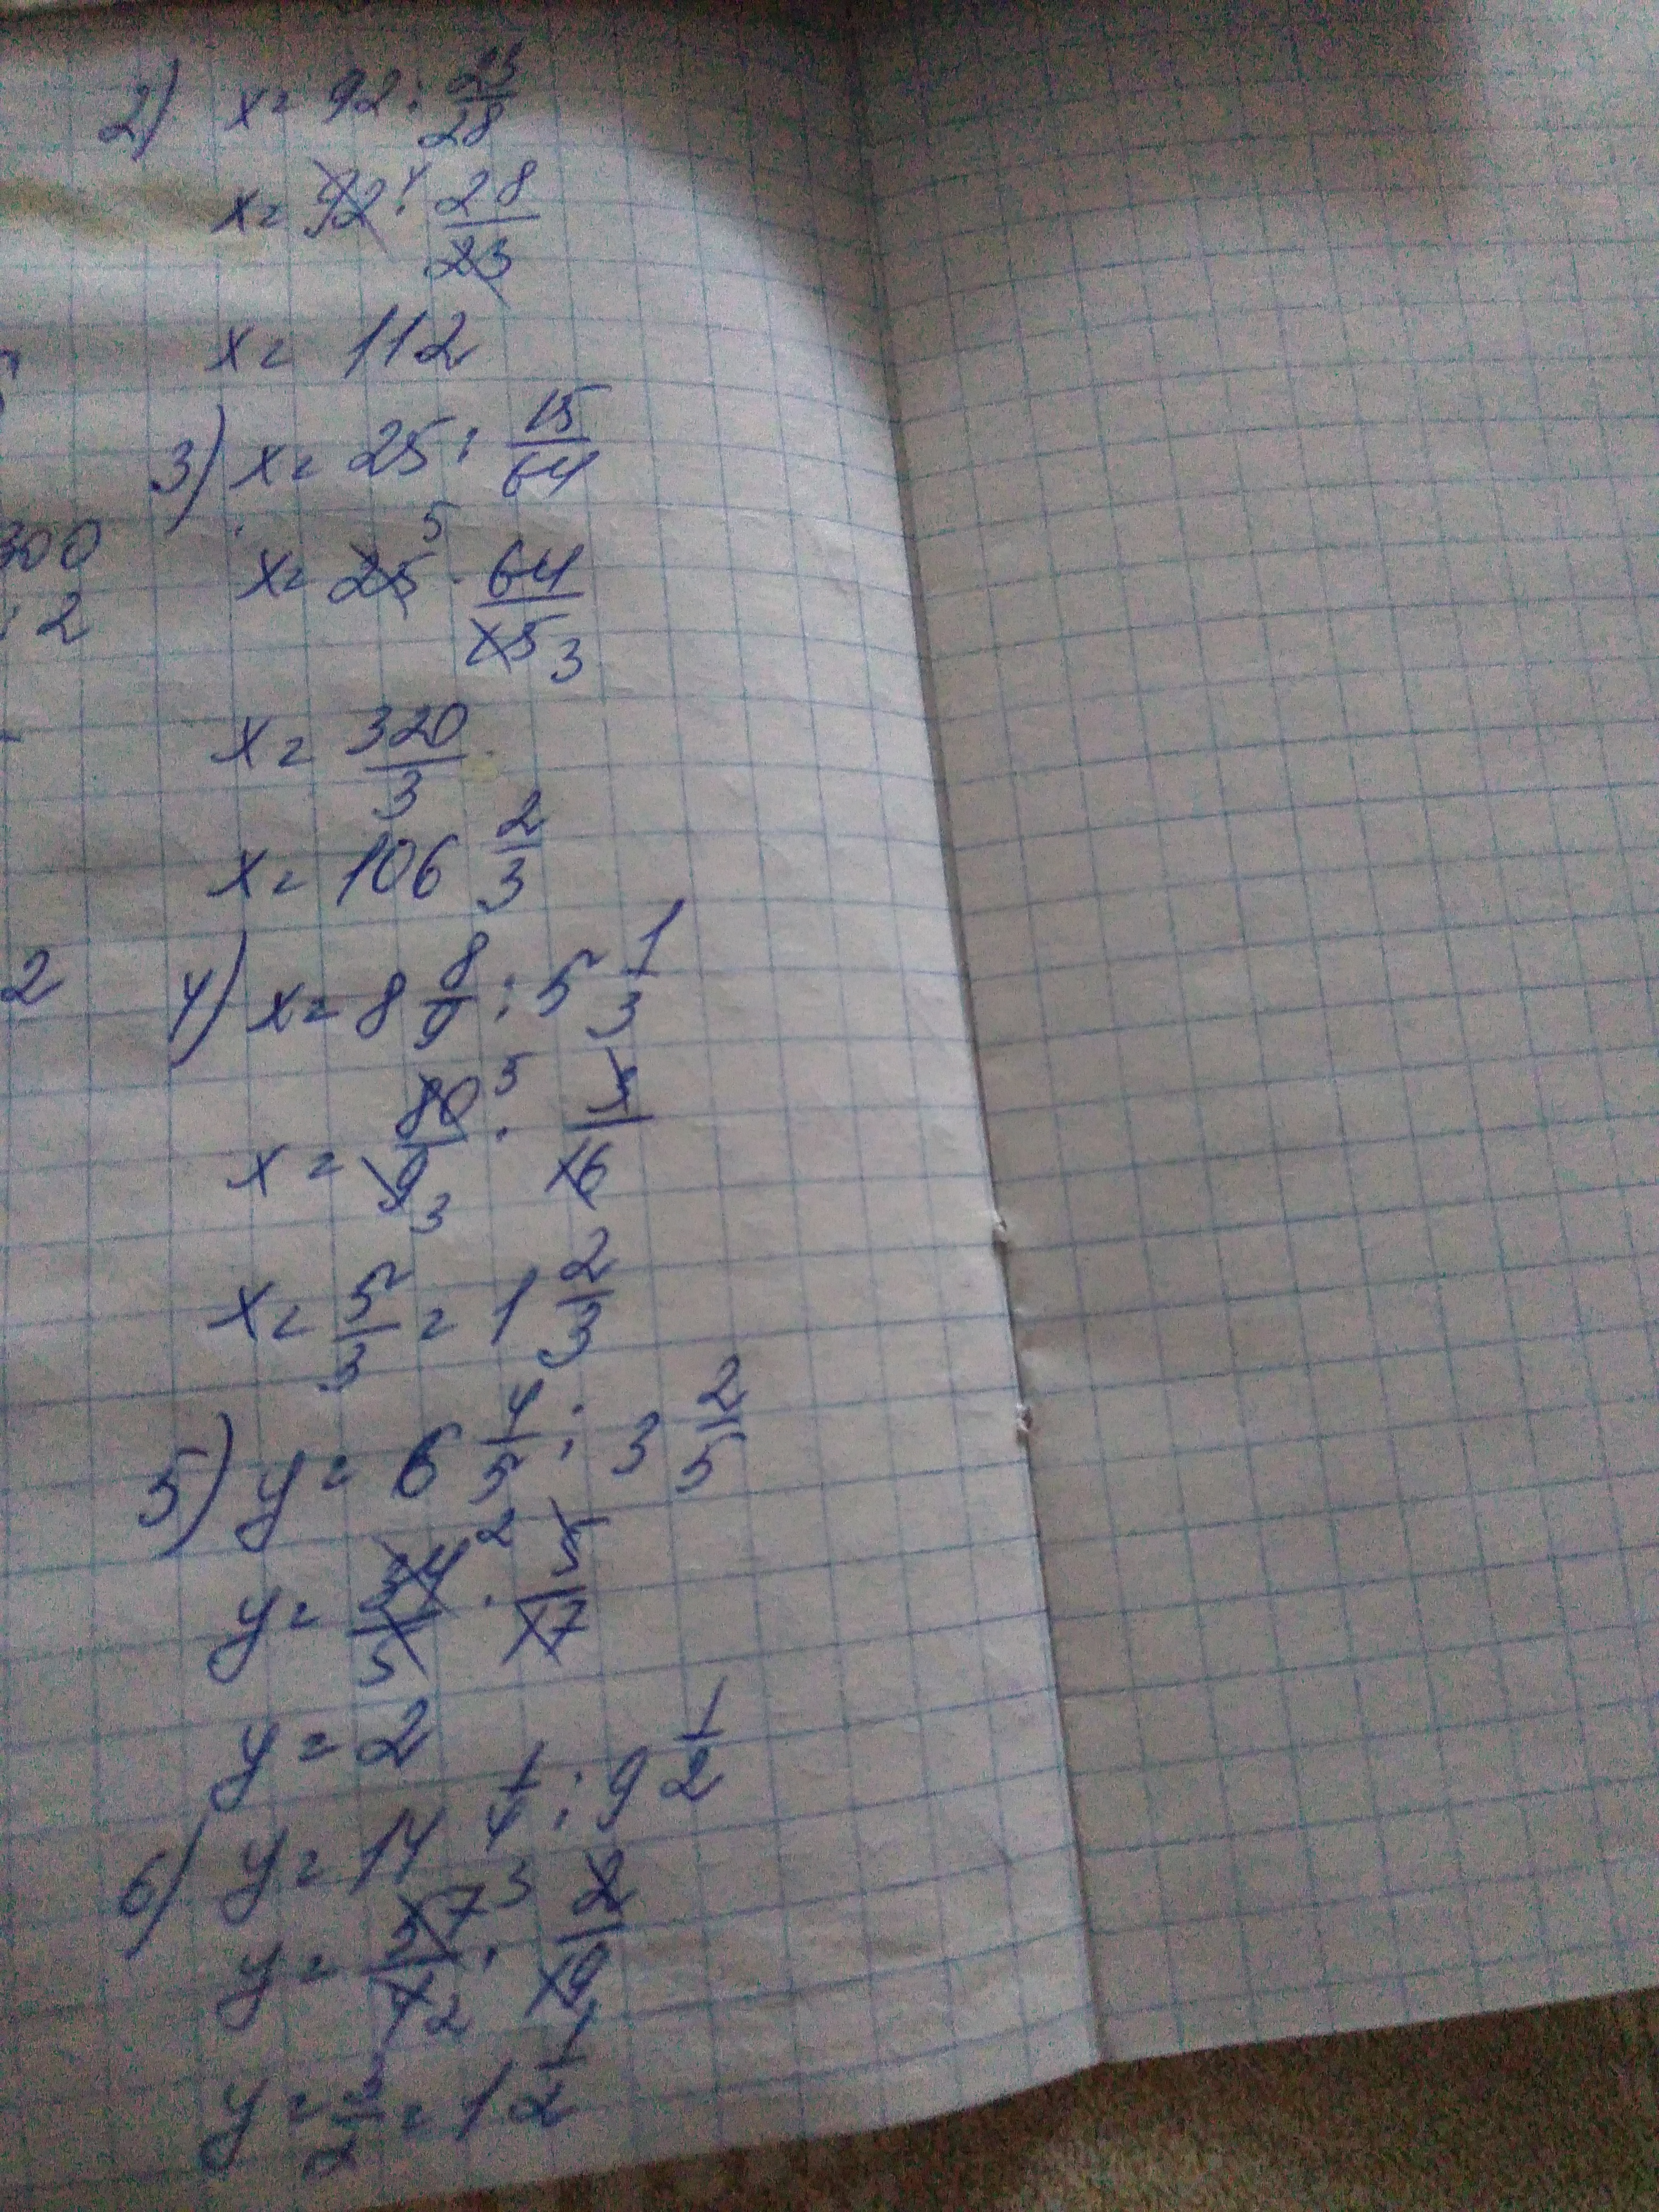 2) x = 92 : 23/28
x = 92 4 · 28/23
x = 112
3) x = 25 : 15/64
300
x = 25 5 · 64/15 3
: 2
x = 320/3
x = 106 2/3
2
4) x = 8 8/9 : 5 1/3
x = 80 5/9 3 · 3/16
x = 5/3 = 1 2/3
5) y = 6 4/5 : 3 2/5
y = 34 2/5 · 5/17
y = 2
6) y = 14 1/4 : 9 1/2
y = 57 3/4 2 · 2/19
y = 3/2 = 1 1/2